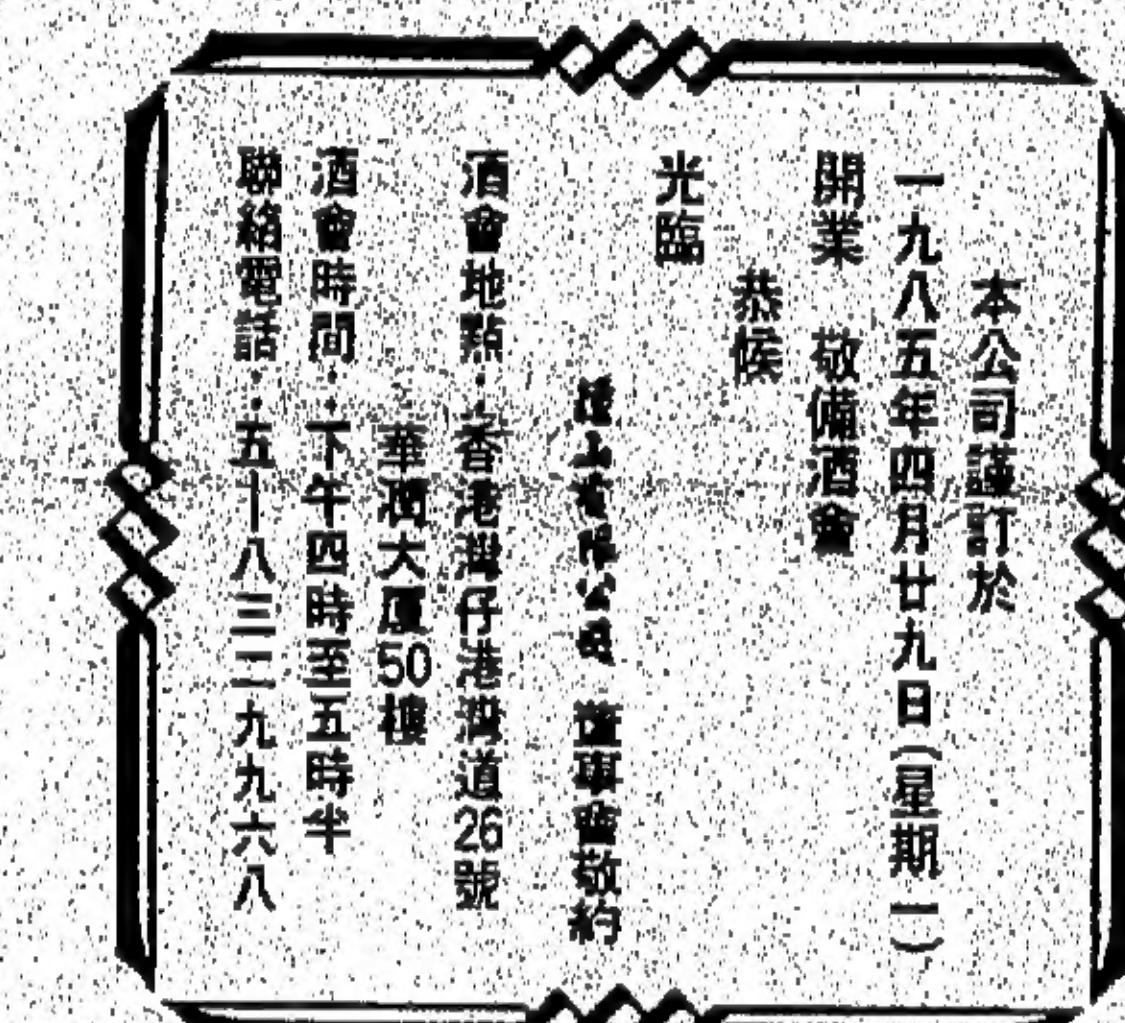 本公司謹訂於
一九八五年四月廿九日(星期一)
開業 敬備酒會
恭候
光臨
山有限公司 董事會敬約
酒會地點：香港灣仔港灣道26號
華潤大廈50樓
酒會時間：下午四時至五時半
聯絡電話：五—八三二九九六八